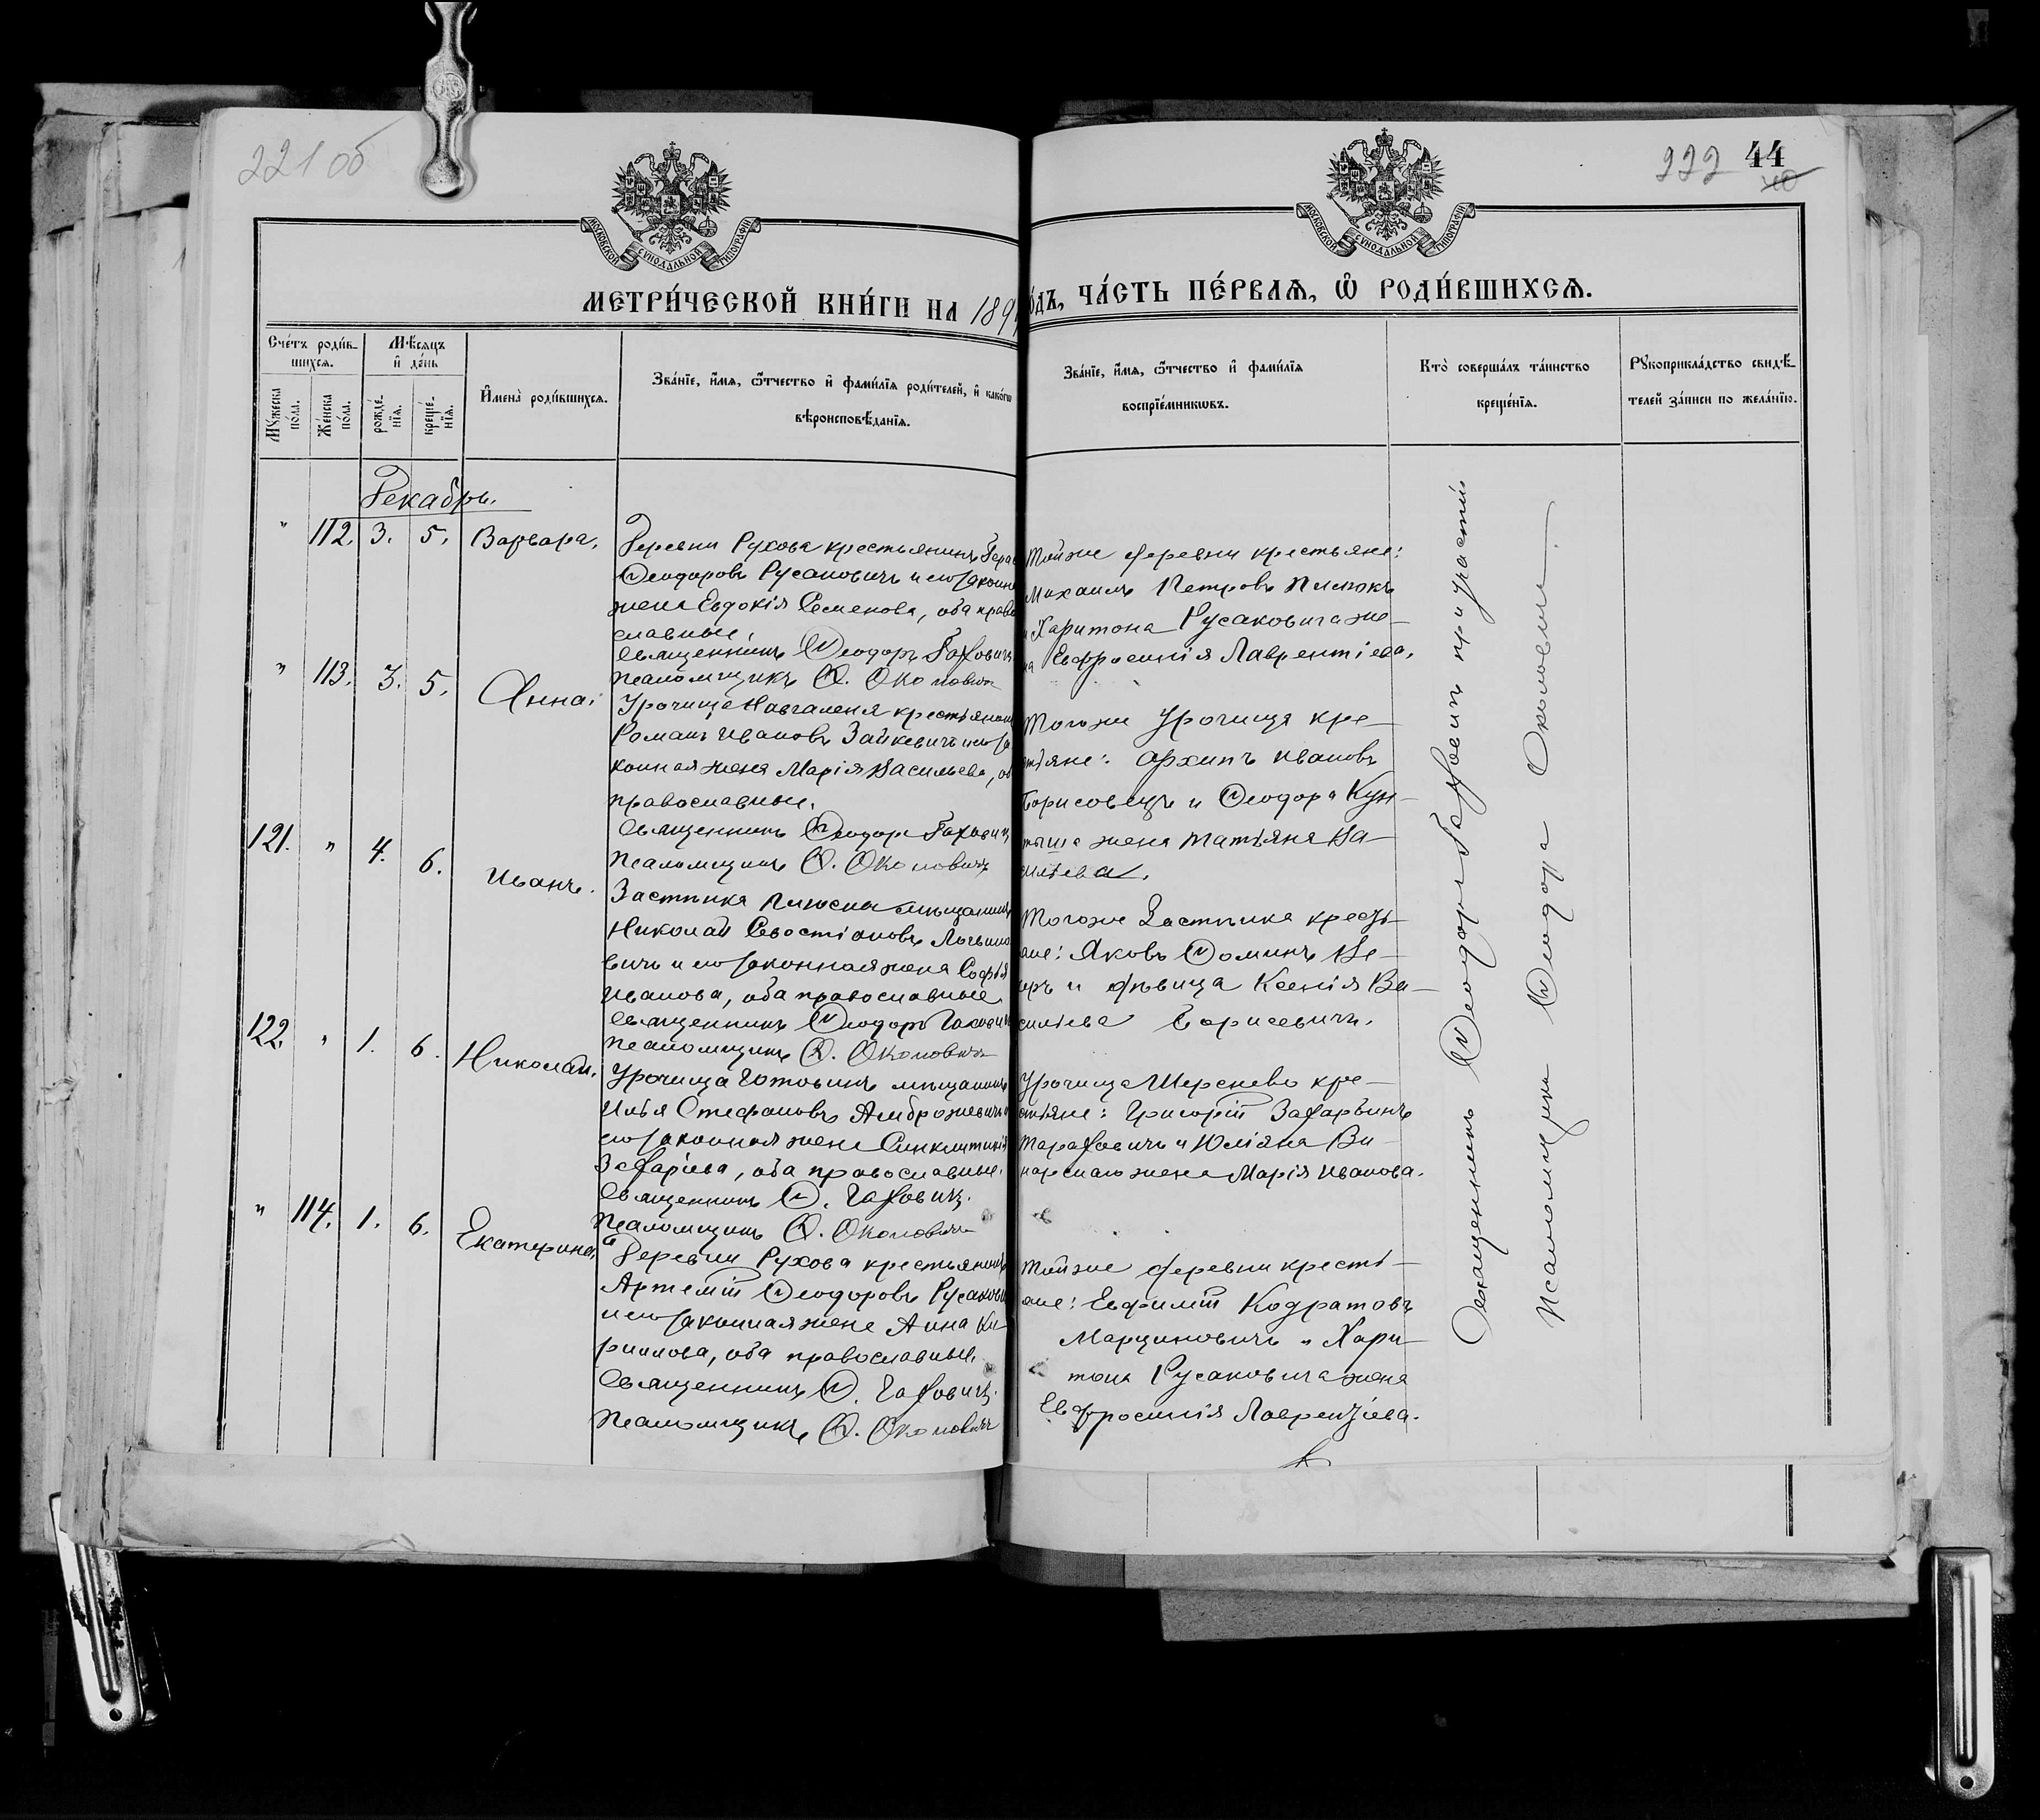 221 об
222 44
40
МОСКОВСКОЙ СѴНОДАЛЬНОЙ ТИПОГРАФІИ
МОСКОВСКОЙ СѴНОДАЛЬНОЙ ТИПОГРАФІИ
МЕТРИ́ЧЕСКОЙ КНИ́ГИ НА 189
О́ДЪ, ЧА́СТЬ ПЕ́РВАѦ, Ѡ҆ РОДИ́ВШИХСѦ.
Счѐтъ роди́в-
шихся.
Мꙋ́жеска
по́ла.
Же́нска
по́ла.
Мѣ́сяцъ
и҆ де́нь
рожде́-
нїя.
креще́-
нїя.
И҆мена̀ роди́вшихся.
Зва́нїе, и҆́мя, ѻ҆́тчество и҆ фами́лїя роди́телей, и҆ како́гѡ
вѣроисповѣ́данїя.
Зва́нїе, и҆́мя, ѻ҆́тчество и҆ фами́лїя
воспрїе́мникѡвъ.
Кто̀ соверша́лъ та́инство
креще́нїя.
Рꙋкоприкла́дство свидѣ́-
телей за́писи по жела́нїю.
Декабрь.
" 112. 3. 5. Варвара.
Деревни Рухова крестьянинъ Гера
Ѳеодоровъ Русаковичъ и его законн
жена Евдокія Семенова, оба право
славные.
Священникъ Ѳеодоръ Гахович
Псаломщикъ Ѳ. Околович
Тойже деревни крестьяне:
Михаилъ Петровъ Пилюкъ
и Харитона Русаковича же-
на Евфросинія Лаврентіева.
" 113. 3. 5. Анна.
Урочища Навгаленя крестьянин
Романъ Ивановъ Зайкевичъ и его за
конная жена Марія Васильева, об
православные.
Священникъ Ѳеодоръ Гахович
Псаломщикъ Ѳ. Околович
Тогоже Урочища кре-
стьяне: Архипъ Ивановъ
Борисовецъ и Ѳеодора Кун-
тыша жена Татьяна Ва-
сильева.
121. " 4. 6. Иванъ.
Застѣнка мѣщанинъ
Николай Севостіановъ Логвино
вичъ и его законная жена Софья
Иванова, оба православные.
Священникъ Ѳеодоръ Гахович
Псаломщикъ Ѳ. Околович
Тогоже Застѣнка кресть-
яне: Яковъ Ѳоминъ Ве-
и дѣвица Ксенія Ва-
сильева Борисевичъ.
122. " 1. 6. Николай.
Урочища мѣщанинъ
Илья Стефановъ Амброжевичъ и
его законная жена Синклитикія
Захарьева, оба православные.
Священникъ Ѳ. Гахович.
Псаломщикъ Ѳ. Околович
Урочища Шеренево кре-
стьяне: Григорій Захарьинъ
Тарахович и Юліана Ви-
нарскаго жена Марія Иванова.
" 114. 1. 6. Екатерина.
Деревни Рухова крестьянинъ
Артемій Ѳеодоровъ Русакови
и его законная жена Анна Ки-
риллова, оба православные.
Священникъ Ѳ. Гахович.
Псаломщикъ Ѳ. Околович
Тойже деревни кресть-
яне: Евфимій Кодратовъ
Марциновичъ и Хари-
тона Русаковича жена
Евфросинія Лаврентіева.
Священникъ Ѳеодоръ Гаховичъ при участіи
Псаломщика Ѳеодора Околовича